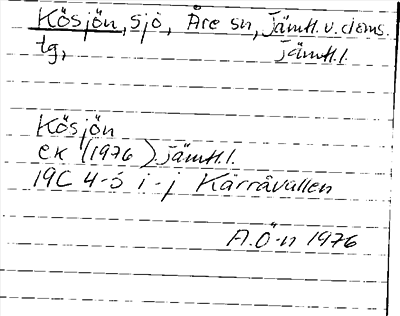 Kösjön, sjö, Åre sn, Jämtl. v. doms.
tg, Jämtl. l.
Kösjön
ek (1976) Jämtl. l.
19C 4-5 i-j Kärråvallen
A.Ö-n 1976